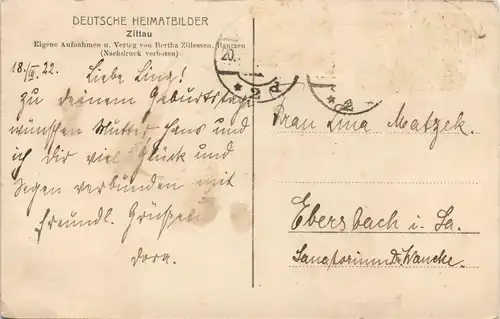 DEUTSCHE HEIMATBILDER
Zittau
Eigene Aufnahmen u. Verlag von Bertha Zillessen, Bautzen
(Nachdruck verboten)
18./III. 22.
Liebe Lina!
Zu deinem Geburtstag
wünschen Mutter, Hans und
ich Dir viel Glück und
Segen verbunden mit
freundl. Grüßen
Dora.
20.
* 2 d
* 2
Frau Lina Matzek.
Ebersbach i. Sa.
Sanatorium Dr. Wancke.